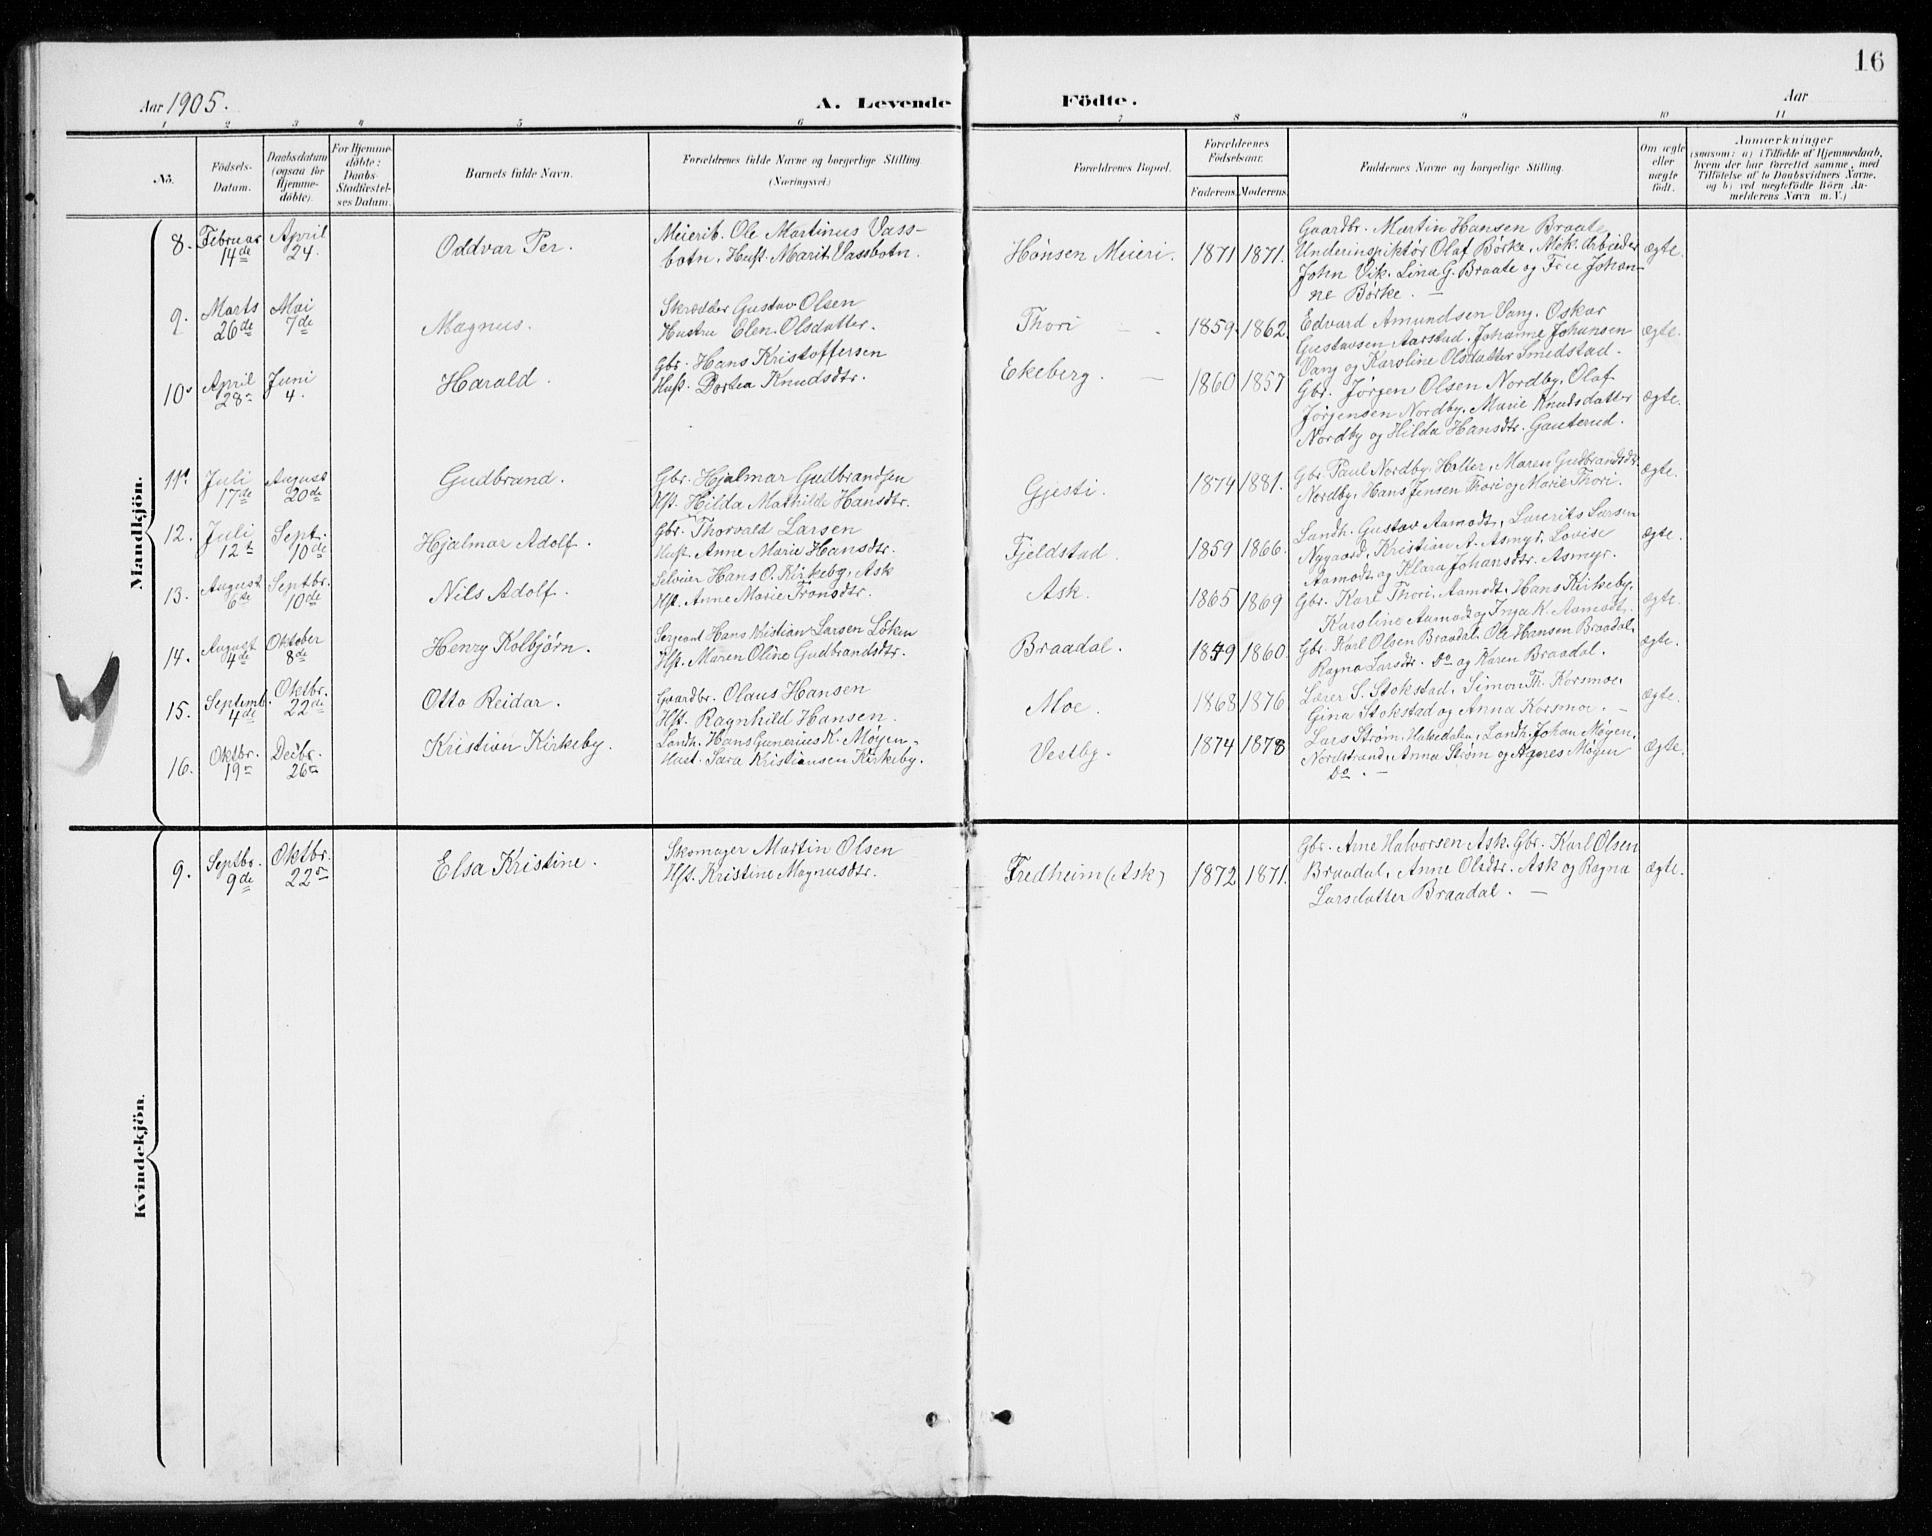 16
Aar 1905.
A. Levende Födte.
Aar
1 2 3 4 5 6 7 8 9 10 11
No.
Födsels-
Datum.
Daabsdatum
(ogsaa for
Hjemme-
döbte).
For Hjemme-
döbte:
Daabs-
Stadfæstel-
ses Datum.
Barnets fulde Navn.
Forældrenes fulde Navne og borgerlige Stilling.
(Næringsvei.)
Forældrenes Bopæl.
Forældrenes
Födselsaar.
Faderens. Moderens.
Faddernes Navne og borgerlige Stilling.
Om ægte
eller
uægte
födt.
Anmærkninger
(saasom: a) i Tilfælde af Hjemmedaab,
hvem der har forrettet samme, med
Tilföielse af to Daabsvidners Navne,
og b) ved uægtefödte Börn An-
melderens Navn m. V.)
Mandkjön.
8. Februar 14de
April 24.
Oddvar Per.
Meierib. Ole Martinus Vass-
botn, Husf. Marit Vassbotn.
Hønsen Meieri. 1871 1871.
Gaardbr. Martin Hansen Braate,
Underinspiktør Olaf Børke, Mek. Arbeider
John Vik, Lina G. Braate og Frue Johan-
ne Børke. —
ægte.
9. Marts 26de
Mai 7de
Magnus.
Skrædder Gustav Olsen
Hustru Elen Olsdatter.
Thori — 1859. 1862
Edvard Amundsen Vang, Oskar
Gustavsen Aarstad, Johanne Johansen
Vang og Karoline Olsdatter Smedstad.
ægte.
10. April 28
Juni 4.
Harald.
Gbr. Hans Kristoffersen
Husf. Dortea Knudsdtr.
Ekeberg. — 1860 1857
Gbr. Jørgen Olsen Nordby, Olaf
Jørgensen Nordby, Marie Knudsdatter
Nordby og Hilda Hansdtr. Gauterud.
ægte.
11. Juli 17de
August 20de
Gudbrand.
Gbr. Hjalmar Gudbrandsen
Hst. Hilda Mathilde Hansdtr.
Gjesti. 1874 1881.
Gbr. Paul Nordby, Maren Gudbrandsdtr.
Nordby, Hans Jensen Thori og Marie Thori.
ægte.
12. Juli 12t
Sept. 10de
Hjalmar Adolf.
Gbr. Thorvald Larsen
Husf. Anne Marie Hansdtr.
Fjeldstad. 1859 1866.
Landh. Gustav Aamodt, Laurits Larsen
Nygaard, Kristian A. Asmyr, Lovise
Aamodt og Klara Johansdtr. Asmyr.
ægte.
13. August 6te
Septbr. 10de
Nils Adolf.
Selveier Hans O. Kirkeby, Ask
Hst. Anne Marie Tronsdtr.
Ask. 1865 1869
Gbr. Karl Thori, Aamodt, Hans Kirkeby,
Karoline Aamodt og Inga K. Aamodt.
ægte.
14. August 4de
Oktober 8de
Henry Kolbjørn.
Sergeant Hans Kristian Larsen Löken
Hst. Maren Oline Gudbrandsdtr.
Braadal. 1859 1860.
Gbr. Karl Olsen Braadal, Ole Hansen Braadal,
Ragna Larsdtr. Do og Karen Braadal.
ægte.
15. Septemb. 4de
Oktbr. 22de
Otto Reidar.
Gaardbr. Olaus Hansen
Hst. Ragnhild Hansen.
Moe. 1868 1876
Lærer S. Stokstad, Simon Th. Korsmoe,
Gina Stokstad og Anna Korsmoe. —
ægte.
16. Oktbr. 19de
Decbr. 26de
Kristian Kirkeby.
Landh. Hans Gunerius K. Møyen,
Hust. Sara Kristiansen Kirkeby.
Vestby. 1874 1878
Lars Strøm, Landh. Johan Møyen,
Nordstrand, Anna Strøm og Agnes Møyen
Do. —
ægte.
Kvindekjön.
9. Septbr. 9de
Oktbr. 22
Elsa Kristine.
Skomager Martin Olsen
Hst. Kristine Magnusdtr.
Fredheim (Ask) 1872 1871.
Gbr. Arne Halvorsen Ask, Gbr. Karl Olsen
Braadal, Anne Olsdtr. Ask og Ragna
Larsdatter Braadal. —
ægte.